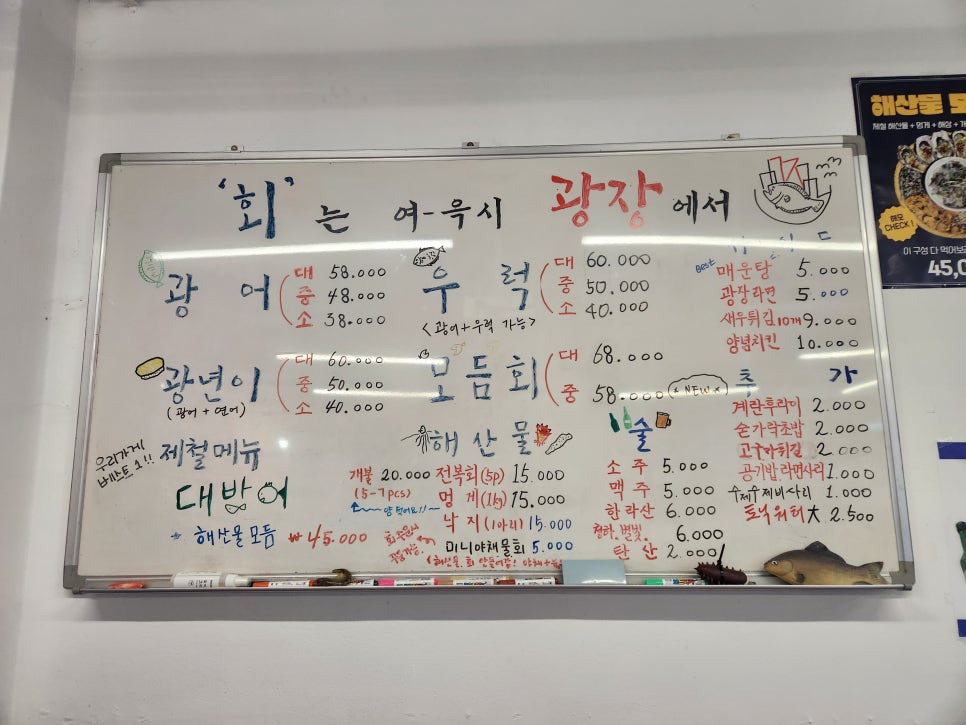 '회' 는 여-윽시 광장에서
광어
대 58.000
중 48.000
소 38.000
우럭
대 60.000
중 50.000
소 40.000
<광어+우럭 가능>
광년이
(광어 + 연어)
대 60.000
중 50.000
소 40.000
모듬회
대 68.000
중 58.000
* NEW *
우리가게 베스트 1!!
제철메뉴
대방어
해산물모듬 ₩45.000
해산물
개불 20.000
(5-7pcs)
양 많어요!!
전복회(5p) 15.000
멍게(1kg) 15.000
낙지(1마리) 15.000
미니야채물회 5.000
술
소주 5.000
맥주 5.000
한라산 6.000
청하. 별빛. 6.000
탄산 2.000
Best
매운탕 5.000
광장라면 5.000
새우튀김10개 9.000
양념치킨 10.000
추가
계란후라이 2.000
숟가락초밥 2.000
고구마튀김 2.000
공기밥, 라면사리 1.000
수제수제비사리 1.000
토닉워터 大 2.500
해산물
제철 해산물 + 멍게 + 해삼 +
해모 CHECK!
이 구성 다 먹어보
45,0